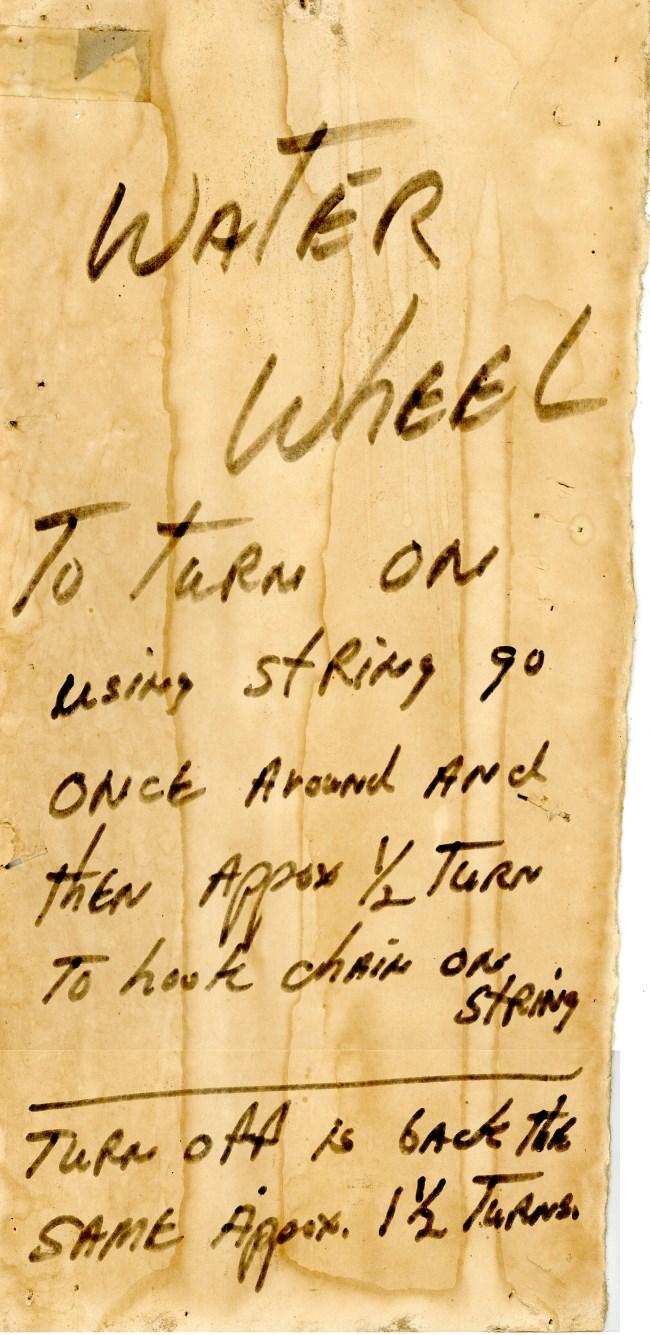 WATER
WhEEL
To TURN ON
using stRing go
ONCE Around ANd
then Appox 1/2 TURN
To hook chAiN ON
StRiNg
TURN off is bAck the
SAME Appox. 1 1/2 TURNS.